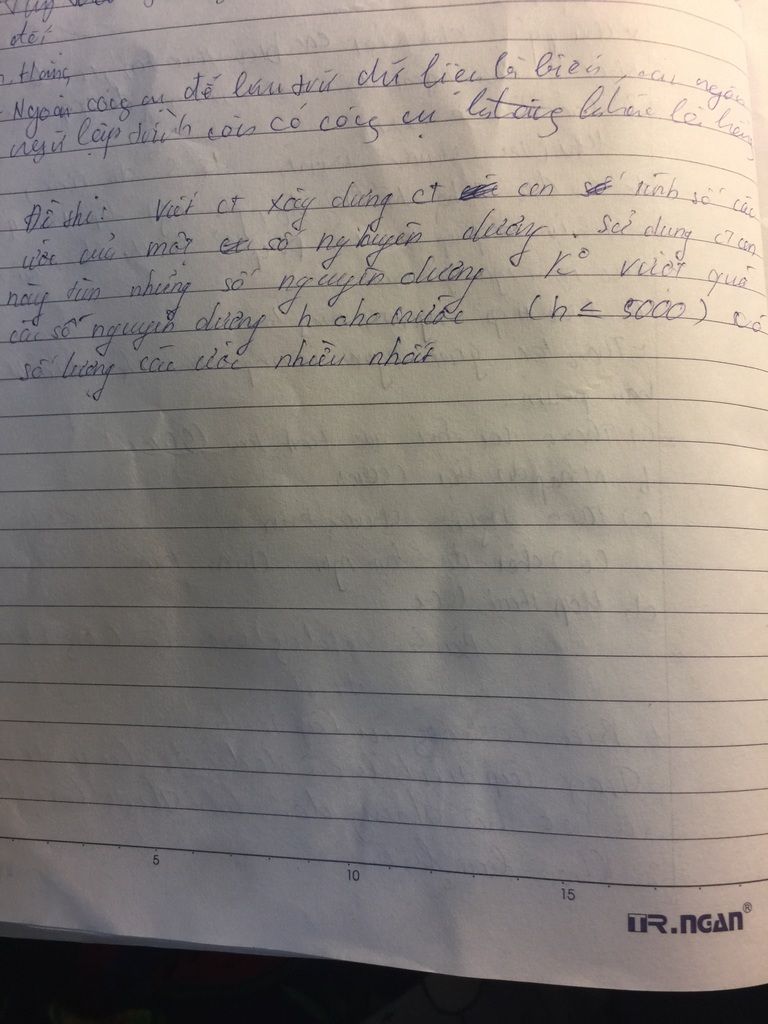 đổi
Hằng
- Ngoài công cụ để lưu trữ dữ liệu là biến, các ngôn
ngữ lập trình còn có công cụ khác là hằng
Đề thi: Viết ct xây dựng ct con tính số các
ước của một số nguyên dương. Sử dụng ct con
này tìm những số nguyên dương k° vượt quá
các số nguyên dương n cho trước (n ≤ 5000) có
số lượng các ước nhiều nhất
5
10
15
TR.NGAN®